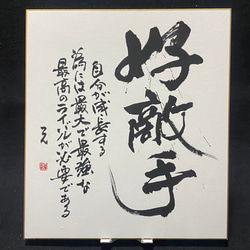 好敵手
自分が成長する
為には最大で最強な
最高のライバルが必要である